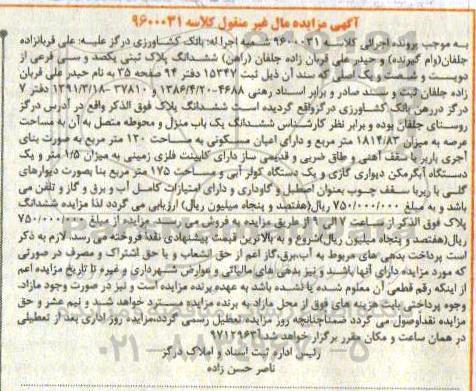 آگهی مزایده مال غیر منقول کلاسه ۹۶۰۰۰۳۱
به موجب پرونده اجرائی کلاسه ۹۶۰۰۰۳۱ شعبه اجرا له: بانک کشاورزی درگز علیه: علی قربانزاده
جلفان(وام گیرنده) و حیدر علی قربان زاده جلفان (راهن) ششدانگ پلاک ثبتی یکصد و سی فرعی از
دویست و شصت و یک اصلی که سند آن ذیل ثبت ۱۵۳۴۷ دفتر ۹۴ صفحه ۳۵ به نام حیدر علی قربان
زاده جلفان ثبت و سند صادر و برابر اسناد رهنی ۴۶۸۸-۱۳۸۶/۴/۲۰ و ۳۷۸۱۰ -۱۳۹۱/۳/۱۸ دفتر ۷
درگز دررهن بانک کشاورزی درگزواقع گردیده است ششدانگ پلاک فوق الذکر واقع در آدرس درگز
روستای جلفان بوده و برابر نظر کارشناس ششدانگ یک باب منزل و محوطه متصل به آن به مساحت
عرصه به میزان ۱۸۱۴/۸۳ متر مربع و دارای اعیان مسکونی به مساحت ۱۳۰ متر مربع به صورت بنای
آجری باربر با سقف آهنی و طاق ضربی و قدیمی ساز دارای کابینت فلزی زمینی به میزان ۱/۵ متر و یک
دستگاه آبگرمکن دیواری گازی و یک دستگاه کولر آبی و مساحت ۱۷۵ متر مربع بنا بصورت دیوارهای
گلی با زیربا سقف چوب بعنوان اصطبل و گاوداری و دارای امتیازات کامل آب و برق و گاز و تلفن می
باشد و به مبلغ ۷۵۰/۰۰۰/۰۰۰ ریال(هفتصد و پنجاه میلیون ریال) ارزیابی می گردد لذا مزایده ششدانگ
پلاک فوق الذکر از ساعت ۹ الی ۱۲ از طریق مزایده به فروش می رسد. مزایده از مبلغ ۷۵۰/۰۰۰/۰۰۰
ریال(هفتصد و پنجاه میلیون ریال)شروع و به بالاترین قیمت پیشنهادی نقدا فروخته می رسد. لازم به ذکر
است پرداخت بدهی های مربوط به آب،برق،گاز اعم از حق انشعاب و یا حق اشتراک و مصرف در صورتی
که مورد مزایده دارای آنها باشد و نیز بدهی های مالیاتی و عوارض شهرداری و غیره تا تاریخ مزایده اعم
از اینکه رقم قطعی آن معلوم شده یا نشده باشد به عهده برنده مزایده است و نیز در صورت وجود مازاد،
وجوه پرداختی بابت هزینه های فوق از محل مازاد به برنده مزایده مسترد خواهد شد و نیم عشر و حق
مزایده نقدأوصول می گردد ضمناچنانچه روز مزایده تعطیل رسمی گردد،مزایده روز اداری بعد از تعطیلی
در همان ساعت و مکان مقرر برگزار خواهد شد.
رئیس اداره ثبت اسناد و املاک درگز
ناصر حسن زاده